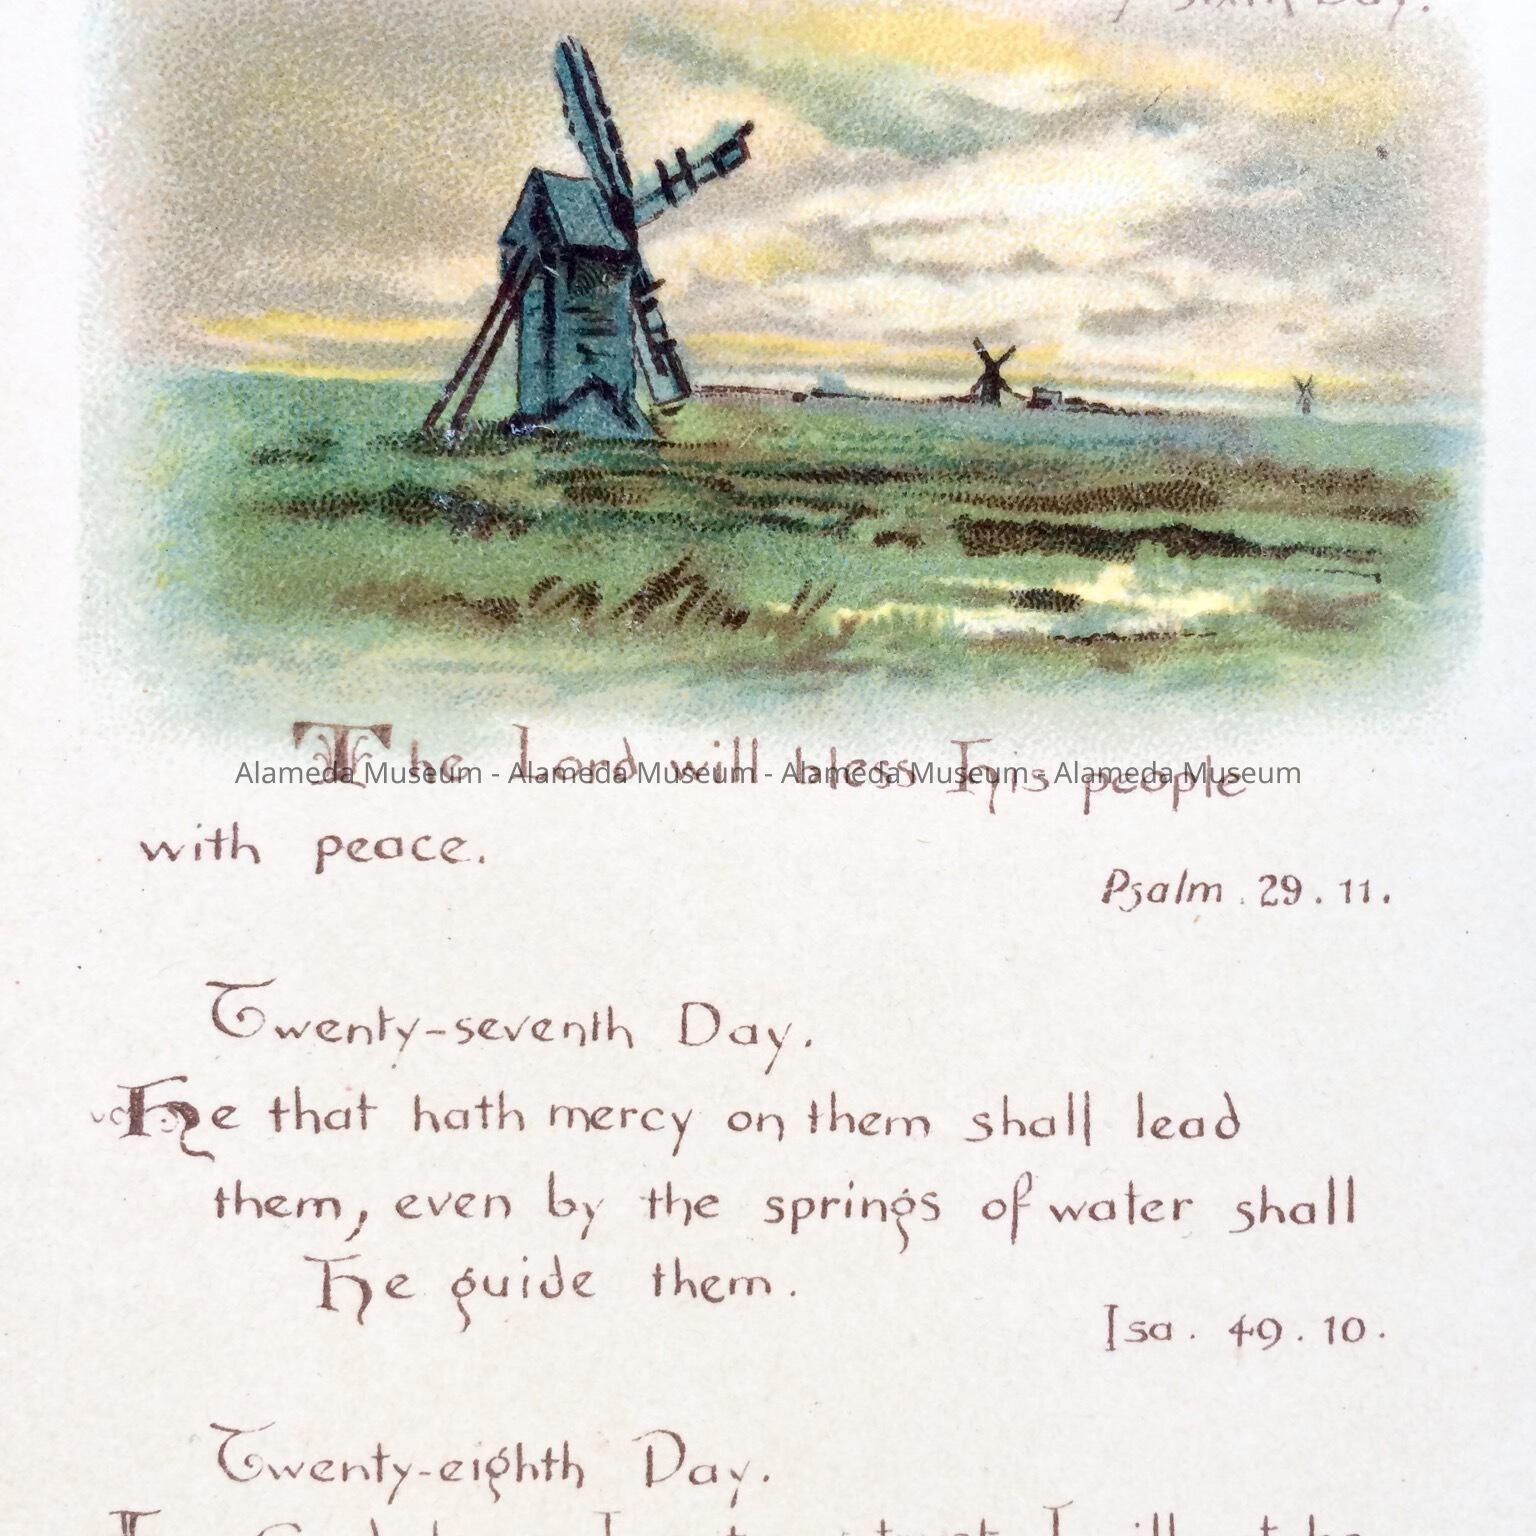 Sixth Day.
The Lord will bless His people
Alameda Museum - Alameda Museum - Alameda Museum - Alameda Museum
with peace.
Psalm. 29. 11.
Twenty-seventh Day.
He that hath mercy on them shall lead
them, even by the springs of water shall
He guide them.
Isa. 49. 10.
Twenty-eighth Day.